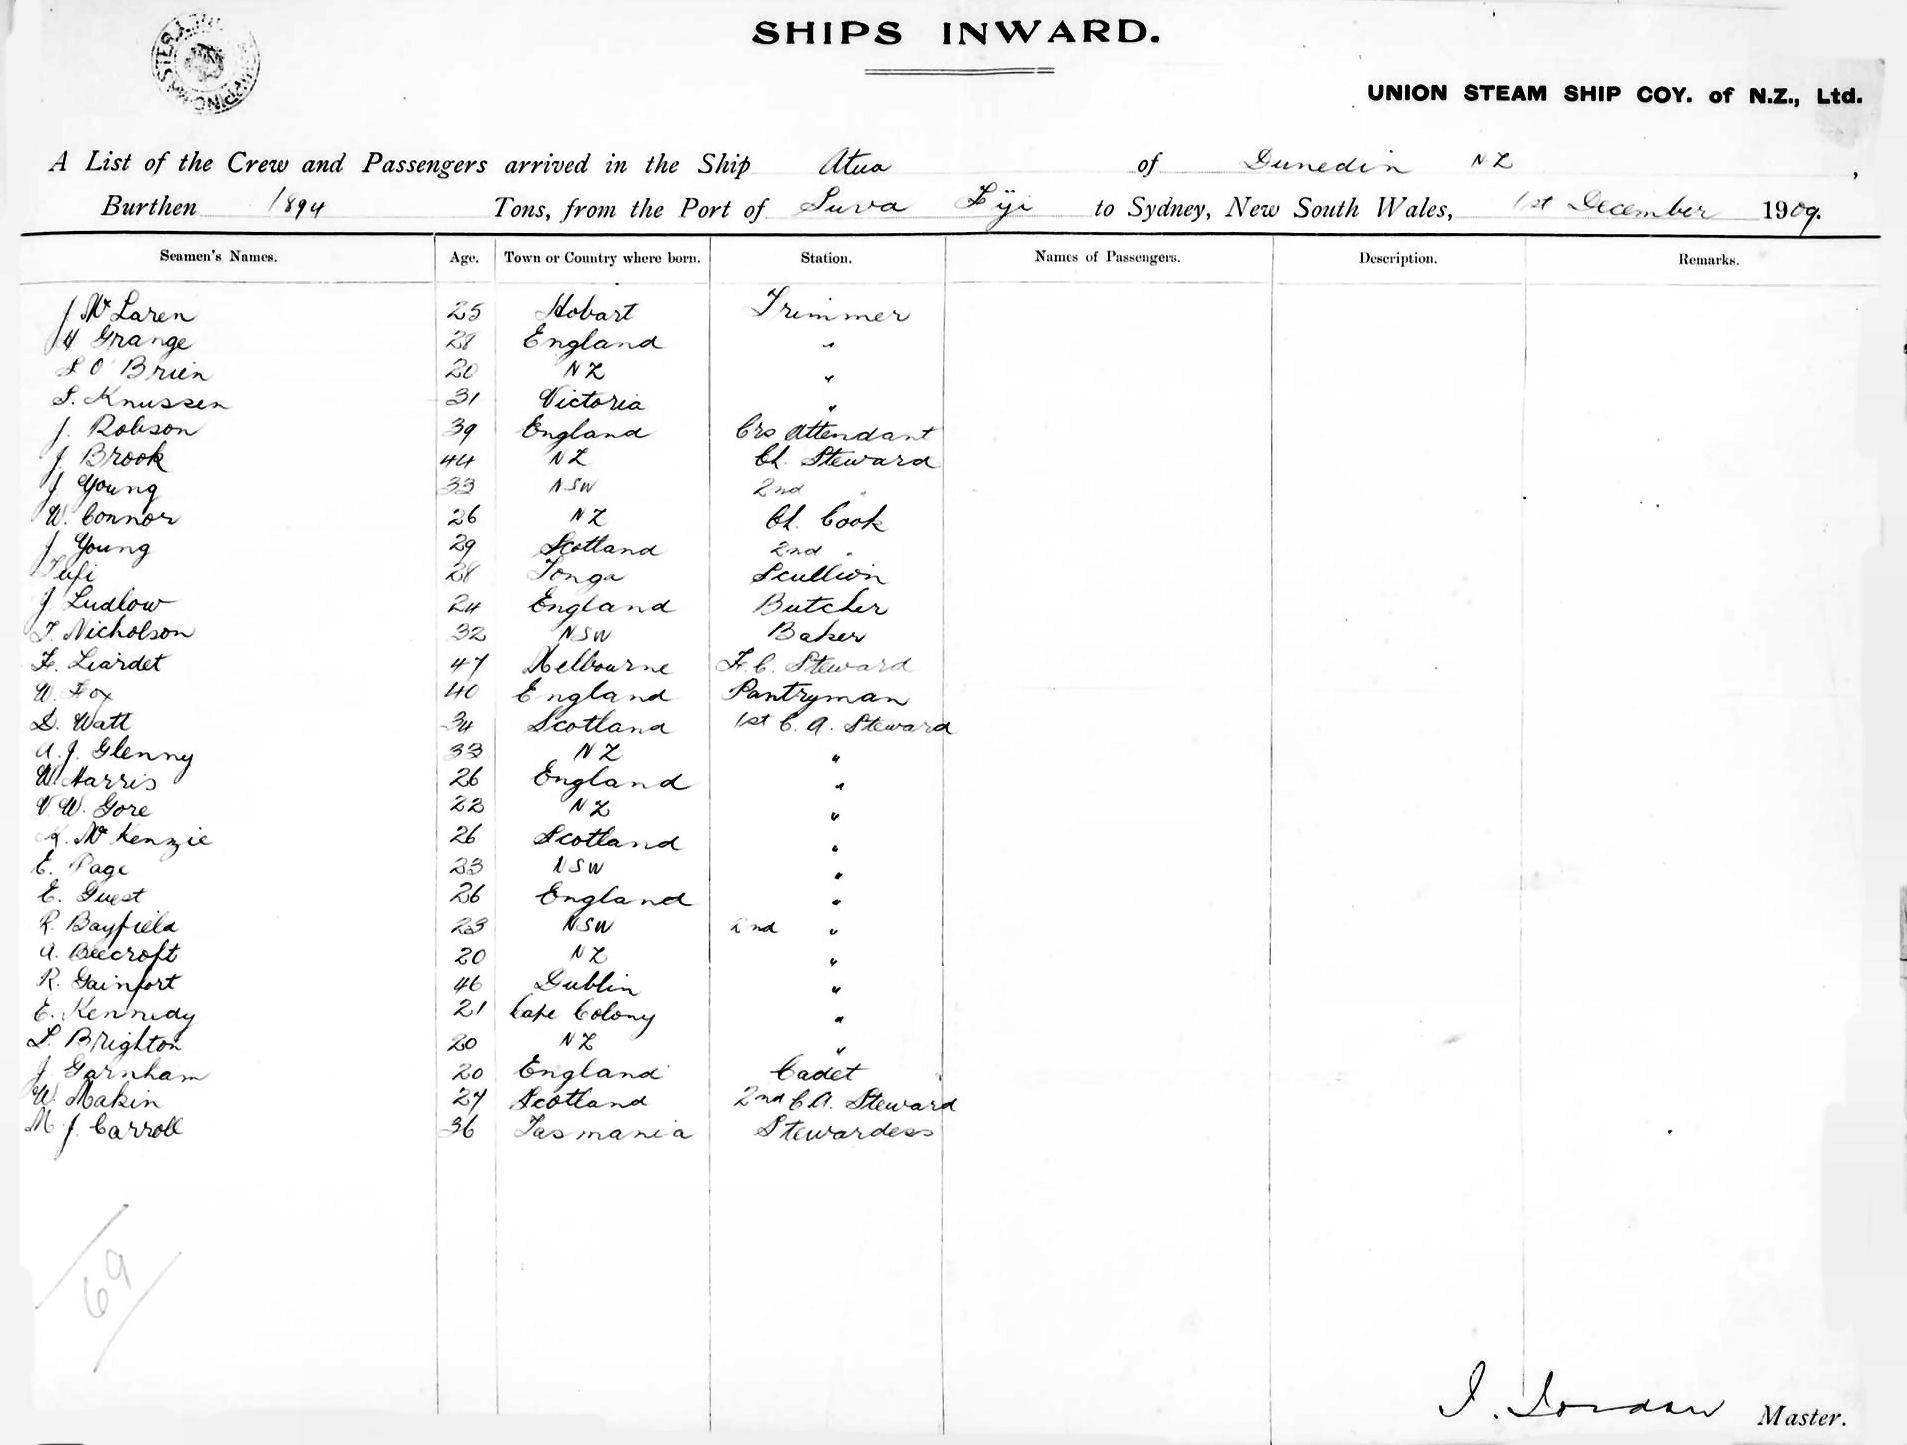 SHIPS INWARD.
UNION STEAM SHIP COY. of N.Z., Ltd.
A List of the Crew and Passengers arrived in the Ship Atua of Dunedin NZ,
Burthen 1894 Tons, from the Port of Suva Fiji to Sydney, New South Wales, 1st December 1909.
Seamen's Names. Age. Town or Country where born. Station. Names of Passengers. Description. Remarks.
J McLaren 25 Hobart Trimmer
H Grange 28 England "
S O'Brien 20 NZ "
S. Knussen 31 Victoria "
J. Robson 39 England Crs Attendant
J. Brook 44 NZ Ch. Steward
J Young 33 NSW 2nd "
W. Connor 26 NZ Ch. Cook
J Young 29 Scotland 2nd "
28 Tonga Scullion
J Ludlow 24 England Butcher
T. Nicholson 32 NSW Baker
F. Liardet 47 Melbourne F.C. Steward
W. Fox 40 England Pantryman
D. Watt 34 Scotland 1st C. A. Steward
A. J. Glenny 33 NZ "
W. Harris 26 England "
V. W. Gore 22 NZ "
K. McKenzie 26 Scotland "
E. Page 23 NSW "
E. Guest 26 England "
R. Bayfield 23 NSW 2nd "
A. Beecroft 20 NZ "
R. Gainfort 46 Dublin "
E. Kennedy 21 Cape Colony "
L. Brighton 20 NZ "
J. Garnham 20 England Cadet
W. Makin 27 Scotland 2nd C.A. Steward
M J. Carroll 36 Tasmania Stewardess
69
Master.